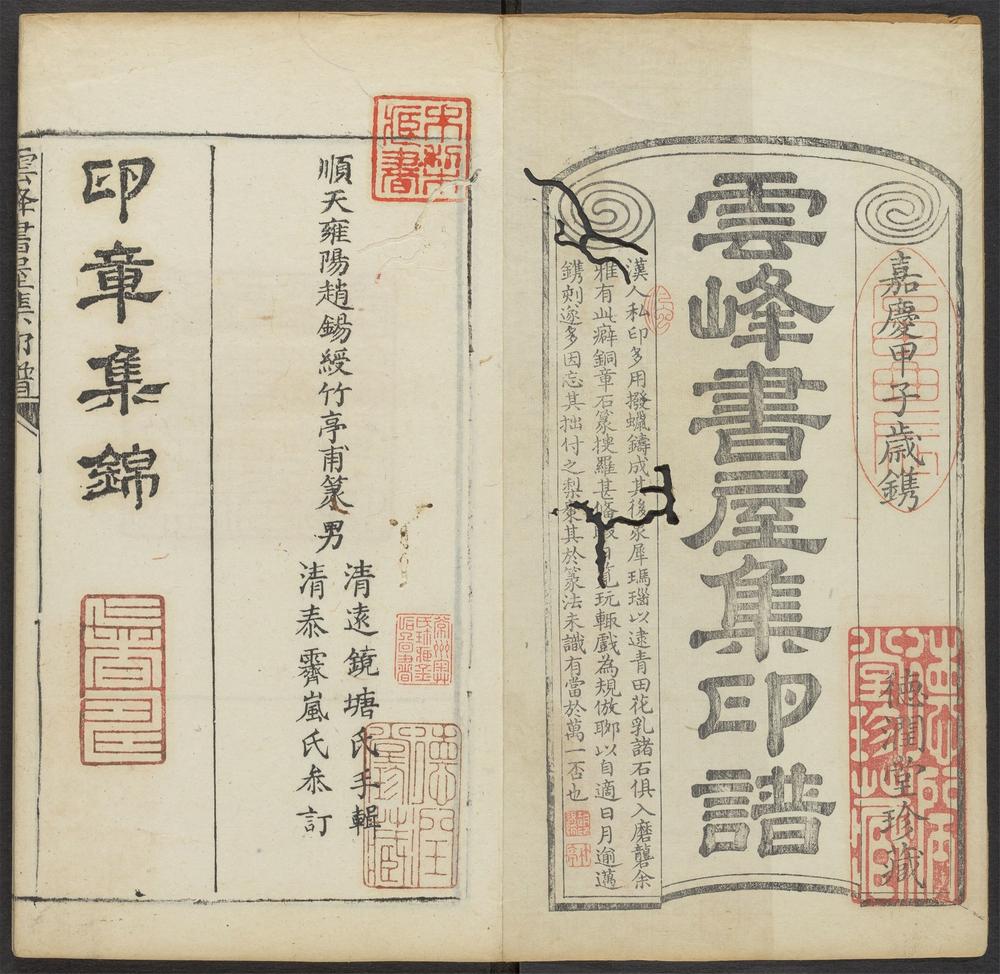 嘉慶甲子歳鐫
德潤堂珍藏
雲峰書屋集印譜
漢人私印多用撥蠟鑄成其後象犀瑪瑙以逮青田花乳諸石俱入磨礱余
雅有此癖銅章石篆搜羅甚備日覽玩輒戲為規倣聊以自適日月逾邁
鐫刻遂多因忘其拙付之梨棗其於篆法未識有當於萬一否也
順天雍陽趙錫綬竹亭甫篆男
清遠鏡塘氏手輯
清泰霽嵐氏叅訂
印章集錦
雲峰書屋集印譜